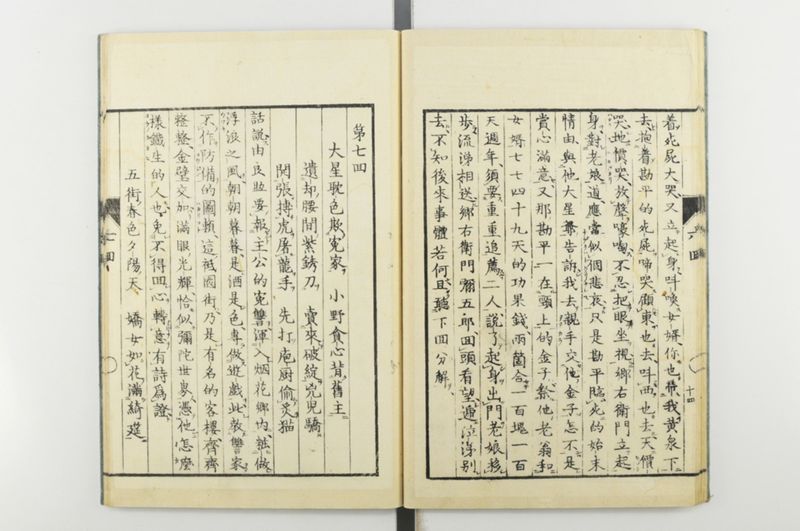 着死屍大哭又立起身叫喚女婿你也帶我黃泉下
去抱着勘平的死屍啼哭顧東也去叫西也去天價
哭地價哭放聲嚎啕不忍把眼坐視鄉右衛門立起
身對老娘道應當似個悲哀只是勘平臨死的始末
情由與他大星告訴我去親手交他金子怎不是
賞心滿意又那勘平一在頭上的金子繳他老翁和
女婿七七四十九天的功果錢兩箇合一百塊一百
天週年須要重重追薦二人說了起身出門老娘移
步流涕相送鄉右衛門彌五郎回頭看望連泣淚別
去不知後來事體若何且聽下回分解
十四
第七回
大星耽色欺冤家 小野貪心背舊主
遺却腰間紫銹刀 賣來破綻兇兒驕
関張搏虎屠龍手 先打庖厨偷炙猫
話說由良助要報主公的冤讐渾入烟花鄉內粧做
浮浪之風朝朝暮暮是酒是色專做遊戲此教讐家
不作防備的圖賴這祗園街乃是有名的客樓齊齊
整整金壁交加滿眼光輝恰似彌陀世界憑他怎麼
樣鐵生的人也免不得回心轉意有詩為證
五街春色夕陽天 嬌女如花滿綺筵